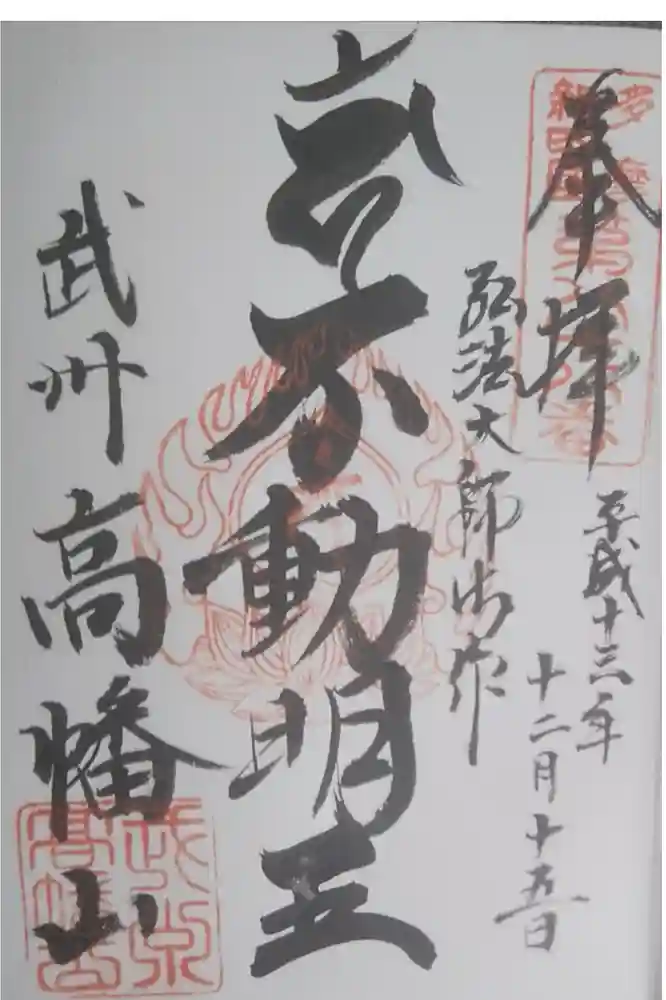 奉拝
平成十三年
十二月十五日
弘法大師御作
不動明王
武州高幡山
武州
高幡山